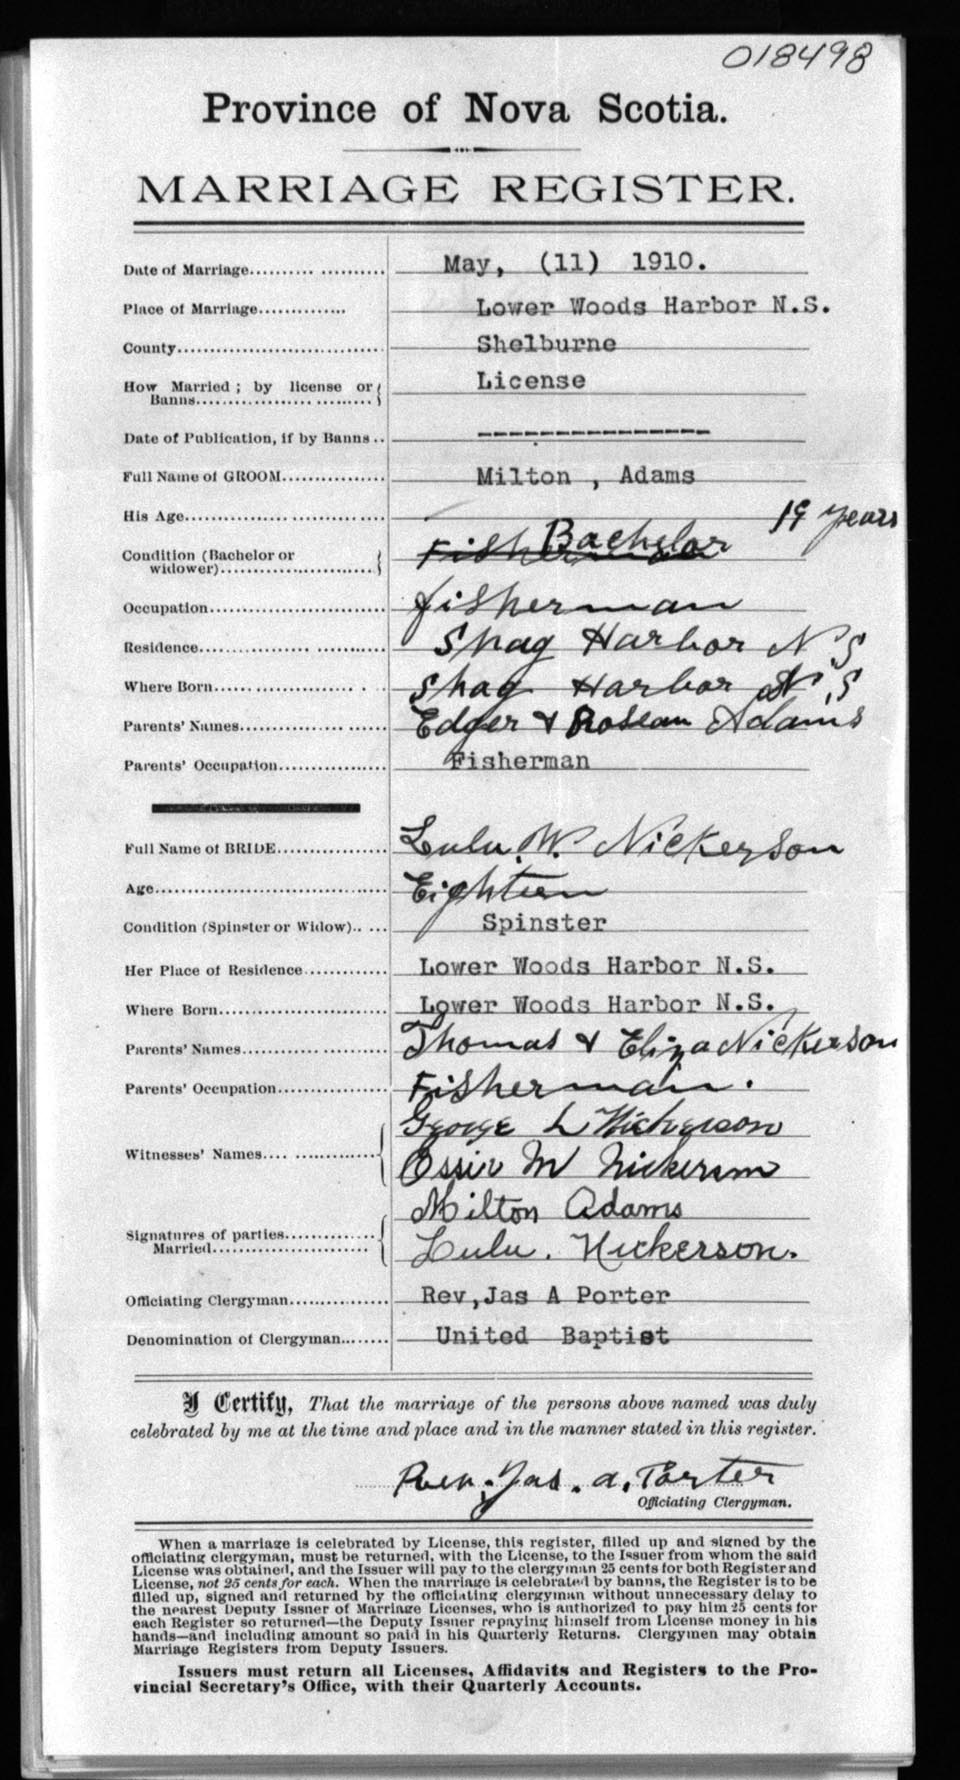 018498
Province of Nova Scotia.
MARRIAGE REGISTER.
Date of Marriage.......... ........... May, (11) 1910.
Place of Marriage.............. Lower Woods Harbor N.S.
County................................ Shelburne
How Married ; by license or License
Banns.............................
Date of Publication, if by Banns .. ---------------
Full Name of GROOM................ Milton , Adams
His Age............................... 19 years
Condition (Bachelor or Bachelor
widower)........................
Occupation........................... fisherman
Residence............................ Shag Harbor N S
Where Born........................ Shag Harbor N.S
Parents' Names..................... Edger & Rosean Adams
Parents' Occupation................. Fisherman
Full Name of BRIDE................ Lulu. W. Nickerson
Age.................................... Eighteen
Condition (Spinster or Widow).. ... Spinster
Her Place of Residence............. Lower Woods Harbor N.S.
Where Born.......................... Lower Woods Harbor N.S.
Parents' Names...................... Thomas & Eliza Nickerson
Parents' Occupation................. Fisherman.
George L Nickerson
Witnesses' Names.... .............. Ossie M Nickerson
Milton Adams
Signatures of parties..............
Married......................... Lulu. Nickerson.
Officiating Clergyman................ Rev,Jas A Porter
Denomination of Clergyman........ United Baptist
I Certify, That the marriage of the persons above named was duly
celebrated by me at the time and place and in the manner stated in this register.
Rev. Jas. A. Porter
Officiating Clergyman.
When a marriage is celebrated by License, this register, filled up and signed by the
officiating clergyman, must be returned, with the License, to the Issuer from whom the said
License was obtained, and the Issuer will pay to the clergyman 25 cents for both Register and
License, not 25 cents for each. When the marriage is celebrated by banns, the Register is to be
filled up, signed and returned by the officiating clergyman without unnecessary delay to
the nearest Deputy Issuer of Marriage Licenses, who is authorized to pay him 25 cents for
each Register so returned—the Deputy Issuer repaying himself from License money in his
hands—and including amount so paid in his Quarterly Returns. Clergymen may obtain
Marriage Registers from Deputy Issuers.
Issuers must return all Licenses, Affidavits and Registers to the Pro-
vincial Secretary's Office, with their Quarterly Accounts.